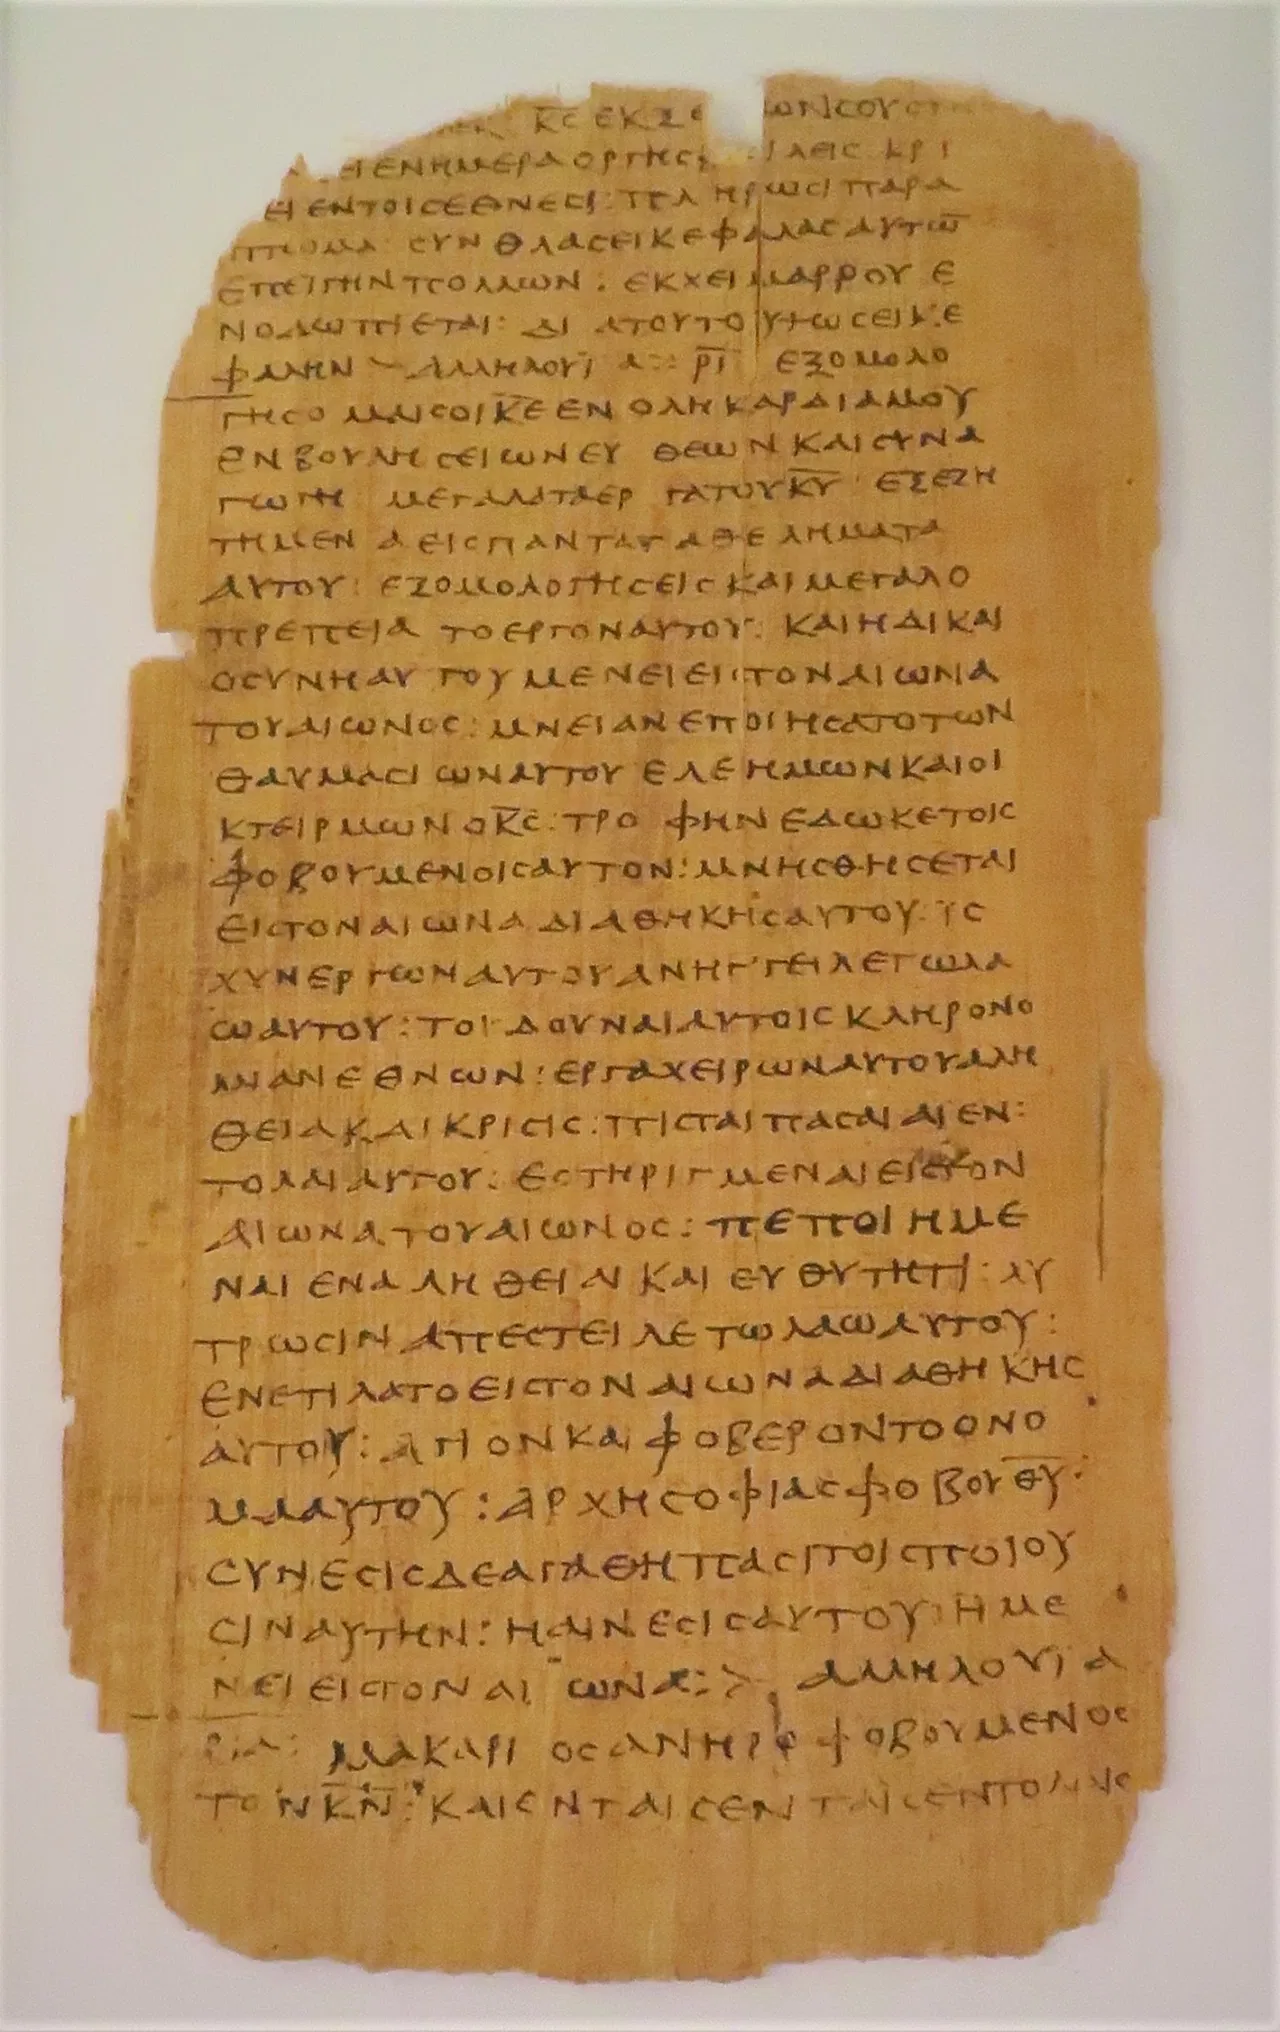 ΚC ΕΚ ΔΕ ΩΝ CΟΥ
ΕΝ ΗΜΕΡΑ ΟΡΓΗC ΙΛΕΙC ΚΡΙ
ΕΙ ΕΝ ΤΟΙC ΕΘΝΕCΙ: ΠΛΗΡΩCΙ ΠΑΡΑ
ΠΤΩΜΑ CΥΝΘΛΑCΕΙ ΚΕΦΑΛΑC ΑΥΤΩ̅
ΕΠΕΙ ΓΗΝ ΠΟΛΛΩΝ: ΕΚ ΧΕΙΜΑΡΡΟΥ Ε
Ν ΟΔΩ ΠΙΕΤΑΙ: ΔΙΑ ΤΟΥΤΟ ΥΨΩCΕΙ ΚΕ
ΦΑΛΗΝ ΑΛΛΗΛΟΥΪΑ: ΡΙ̅ ΕΞΟΜΟΛΟ
ΓΗCΟΜΑΙ CΟΙ Κ̅Ε̅ ΕΝ ΟΛΗ ΚΑΡΔΙΑ ΜΟΥ
ΕΝ ΒΟΥΛΗCΕΙ ΩΝ ΕΥΘΕΩΝ ΚΑΙ CΥΝΑ
ΓΩΓΗ ΜΕΓΑΛΑ ΤΑ ΕΡΓΑ ΤΟΥ Κ̅Υ̅ ΕΞΕΖΗ
ΤΗΜΕΝΑ ΕΙC ΠΑΝΤΑ ΤΑ ΘΕΛΗΜΑΤΑ
ΑΥΤΟΥ: ΕΞΟΜΟΛΟΓΗCΕΙC ΚΑΙ ΜΕΓΑΛΟ
ΠΡΕΠΕΙΑ ΤΟ ΕΡΓΟΝ ΑΥΤΟΥ: ΚΑΙ Η ΔΙΚΑΙ
ΟCΥΝΗ ΑΥΤΟΥ ΜΕΝΕΙ ΕΙC ΤΟΝ ΑΙΩΝΑ
ΤΟΥ ΑΙΩΝΟC: ΜΝΕΙΑΝ ΕΠΟΙΗCΑΤΟ ΤΩΝ
ΘΑΥΜΑCΙΩΝ ΑΥΤΟΥ ΕΛΕΗΜΩΝ ΚΑΙ ΟΙ
ΚΤΕΙΡΜΩΝ Ο Κ̅C̅: ΤΡΟΦΗΝ ΕΔΩΚΕ ΤΟΙC
ΦΟΒΟΥΜΕΝΟΙC ΑΥΤΟΝ: ΜΝΗCΘΗCΕΤΑΙ
ΕΙC ΤΟΝ ΑΙΩΝΑ ΔΙΑΘΗΚΗC ΑΥΤΟΥ: ΪC
ΧΥΝ ΕΡΓΩΝ ΑΥΤΟΥ ΑΝΗΓΓΕΙΛΕ ΤΩ ΛΑ
Ω ΑΥΤΟΥ: ΤΟΥ ΔΟΥΝΑΙ ΑΥΤΟΙC ΚΛΗΡΟΝΟ
ΜΙΑΝ ΕΘΝΩΝ: ΕΡΓΑ ΧΕΙΡΩΝ ΑΥΤΟΥ ΑΛΗ
ΘΕΙΑ ΚΑΙ ΚΡΙCΙC: ΠΙCΤΑΙ ΠΑCΑΙ ΑΙ ΕΝ:
ΤΟΛΑΙ ΑΥΤΟΥ: ΕCΤΗΡΙΓΜΕΝΑΙ ΕΙC ΤΟΝ
ΑΙΩΝΑ ΤΟΥ ΑΙΩΝΟC: ΠΕΠΟΙΗΜΕ
ΝΑΙ ΕΝ ΑΛΗΘΕΙΑΙ ΚΑΙ ΕΥΘΥΤΗΤΙ: ΛΥ
ΤΡΩCΙΝ ΑΠΕCΤΕΙΛΕ ΤΩ ΛΑΩ ΑΥΤΟΥ:
ΕΝΕΤΙΛΑΤΟ ΕΙC ΤΟΝ ΑΙΩΝΑ ΔΙΑΘΗΚΗC
ΑΥΤΟΥ: ΑΓΙΟΝ ΚΑΙ ΦΟΒΕΡΟΝ ΤΟ ΟΝΟ
ΜΑ ΑΥΤΟΥ: ΑΡΧΗ CΟΦΙΑC ΦΟΒΟΥ Θ̅Υ̅:
CΥΝΕCΙC ΔΕ ΑΓΑΘΗ ΠΑCΙ ΤΟΙC ΠΟΙΟΥ
CΙΝ ΑΥΤΗΝ: Η ΑΙΝΕCΙC ΑΥΤΟΥ Η ΜΕ
ΝΕΙ ΕΙC ΤΟΝ ΑΙΩΝΑ: > ΑΛΛΗΛΟΥΪΑ
ΡΙΑ: ΜΑΚΑΡΙΟC ΑΝΗΡ Ο ΦΟΒΟΥΜΕΝΟC
ΤΟΝ Κ̅Ν̅: ΚΑΙ ΕΝ ΤΑΙC ΕΝ ΤΑΙC ΕΝΤΟΛΑΙC